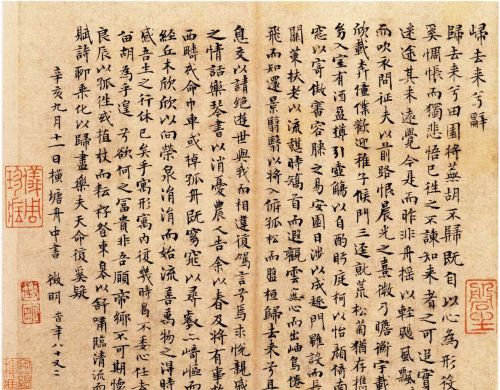 歸去来兮辭
歸去来兮田園將蕪胡不歸既自以心為形役
奚惆悵而獨悲悟已往之不諫知来者之可追實
迷途其未遠覺今是而昨非舟摇以輕颺風飄
而吹衣問征夫以前路恨晨光之熹微乃瞻衡宇載
欣載奔僮僕歡迎稚子候門三逕就荒松菊猶存携
幼入室有酒盈樽引壺觴以自酌眄庭柯以怡顔倚
窓以寄傲審容膝之易安園日涉以成趣門雖設而長
關策扶老以流憩時矯首而遐觀雲無心而出岫鳥倦
飛而知還景翳翳以將入撫孤松而盤桓歸去来
息交以請絶遊世與我而相違復駕言兮焉求悦親戚
之情話樂琴書以消憂農人告余以春及將有事
西疇或命巾車或棹孤舟既窈窕以尋壑亦崎嶇而
經丘木欣欣以向榮泉涓涓而始流善萬物之得時
感吾生之行休已矣乎寓形寓内復幾時曷不委心任去
留胡為乎遑遑兮欲何之富貴非吾願帝鄉不可期懷
良辰以孤往或植杖而耘耔登東臯以舒嘯臨清流而
賦詩聊乘化以歸盡樂夫天命復奚疑
辛亥九月十一日横塘舟中書 徵明 時年八十又二